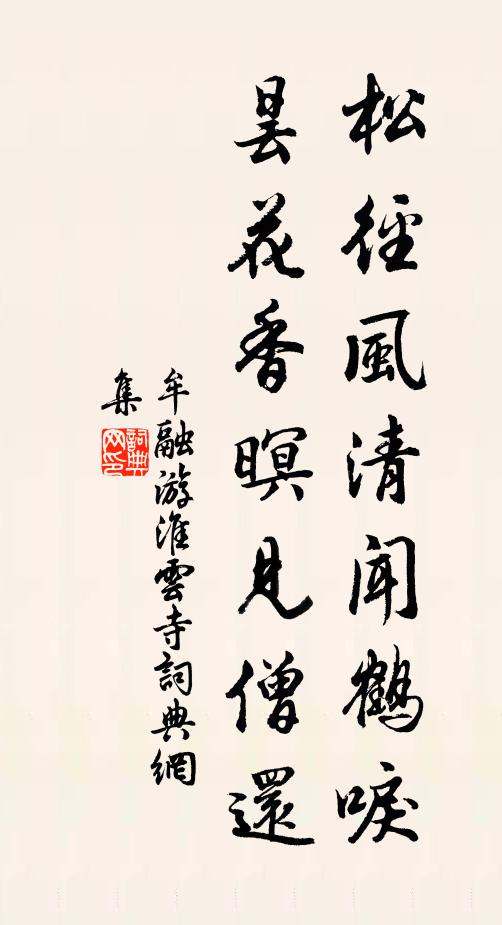 松徑風清聞鶴唳
曇花香暝見僧還
牟融游淮雲寺詞典網
集
詞典網印